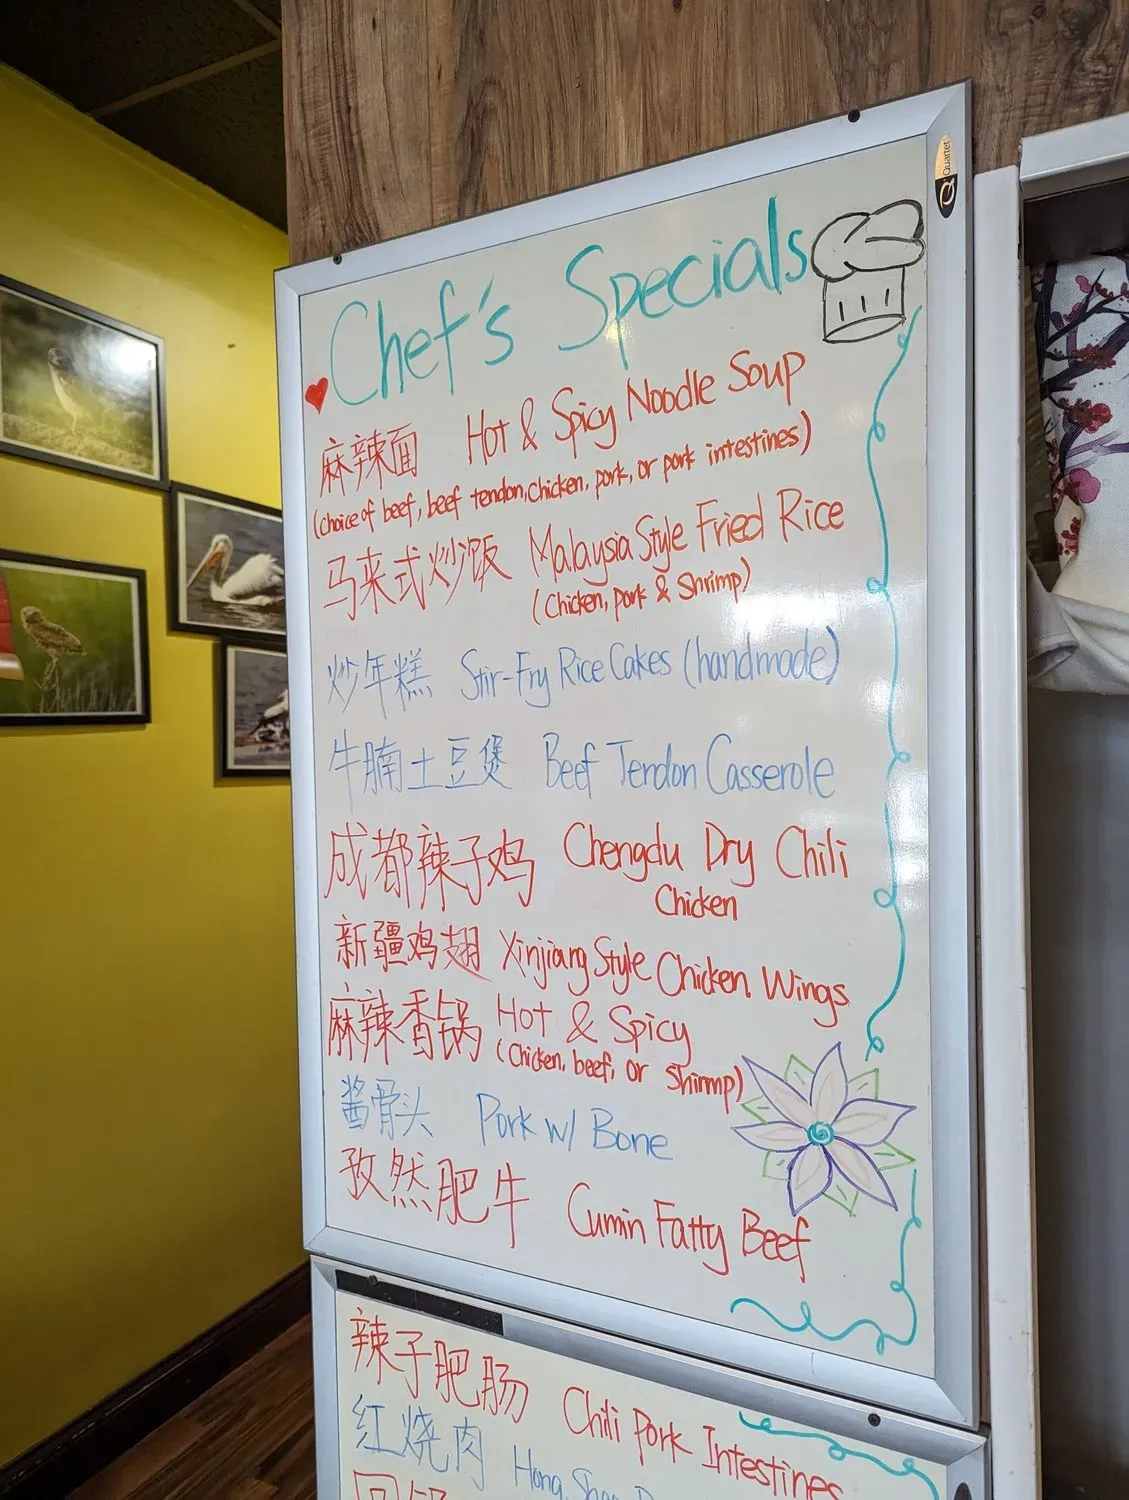 Quartet
Chef's Specials
麻辣面 Hot & Spicy Noodle Soup
(choice of beef, beef tendon, chicken, pork, or pork intestines)
马来式炒饭 Malaysia Style Fried Rice
(chicken, pork & Shrimp)
炒年糕 Stir-Fry Rice Cakes (handmade)
牛腩土豆煲 Beef Tendon Casserole
成都辣子鸡 Chengdu Dry Chili
Chicken
新疆鸡翅 Xinjiang Style Chicken Wings
麻辣香锅 Hot & Spicy
(Chicken, beef, or Shrimp)
酱骨头 Pork w/ Bone
孜然肥牛 Cumin Fatty Beef
辣子肥肠 Chili Pork Intestines
红烧肉 Hong Shao
回锅